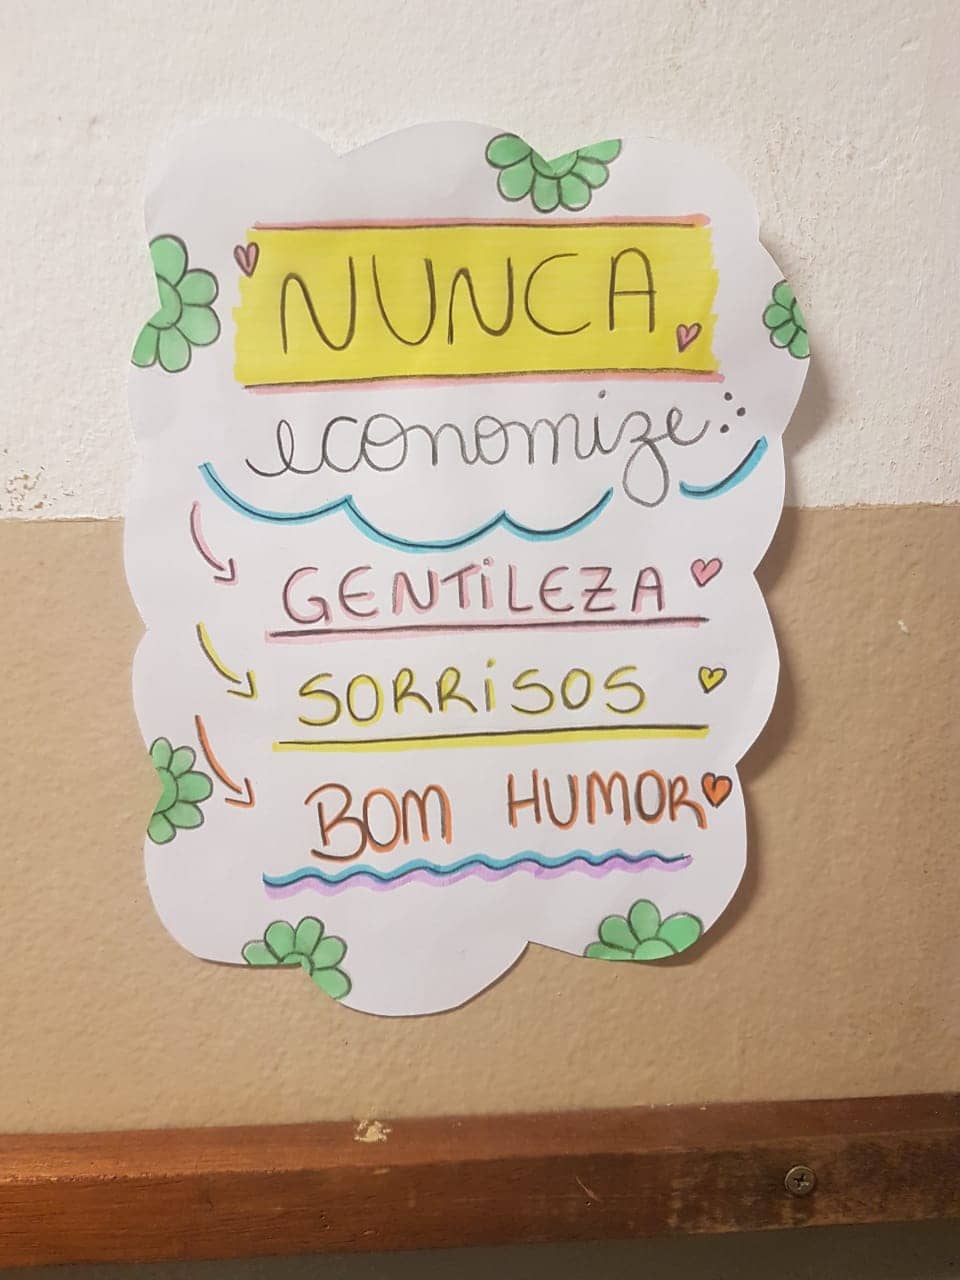 NUNCA
economize:
GENTILEZA
SORRISOS
BOM HUMOR